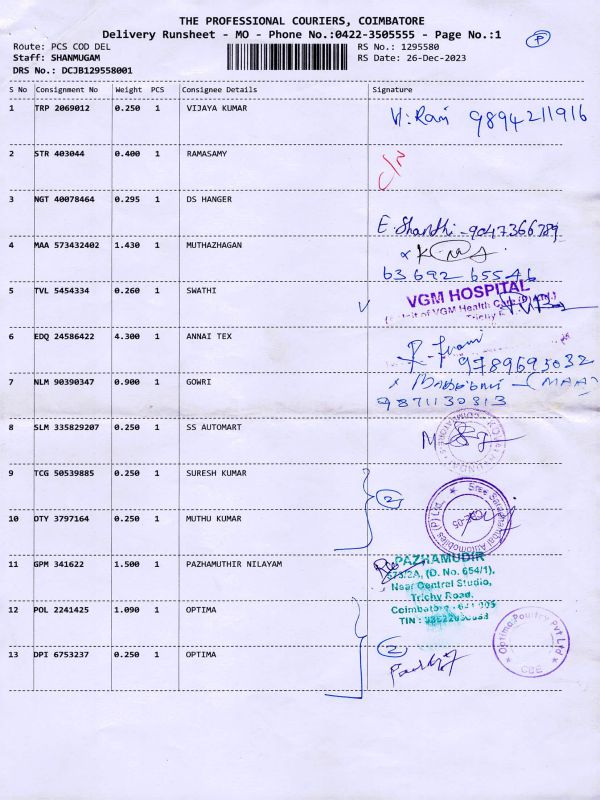 THE PROFESSIONAL COURIERS, COIMBATORE
Delivery Runsheet - MO - Phone No.:0422-3505555 - Page No.:1
Route: PCS COD DEL RS No.: 1295580
Staff: SHANMUGAM RS Date: 26-Dec-2023
DRS No.: DCJB129558001
P
S No Consignment No Weight PCS Consignee Details Signature
1 TRP 2069012 0.250 1 VIJAYA KUMAR 9894211916
2 STR 403044 0.400 1 RAMASAMY
3 NGT 40078464 0.295 1 DS HANGER E. Shanthi - 9047366789
4 MAA 573432402 1.430 1 MUTHAZHAGAN
63692 65546
5 TVL 5454334 0.260 1 SWATHI VGM HOSPITAL
of VGM Health
Trichy
6 EDQ 24586422 4.300 1 ANNAI TEX
9789695032
7 NLM 90390347 0.900 1 GOWRI (MAA)
9871130313
8 SLM 335829207 0.250 1 SS AUTOMART
9 TCG 50539885 0.250 1 SURESH KUMAR 2
Automobiles (P) Ltd.
10 OTY 3797164 0.250 1 MUTHU KUMAR
11 GPM 341622 1.500 1 PAZHAMUTHIR NILAYAM PAZHAMUDIR
(D. No. 654/1),
Near Central Studio,
Trichy Road,
Coimbatore - 641 005
TIN :
12 POL 2241425 1.090 1 OPTIMA Optima Poultry Pvt Ltd
CBE
13 DPI 6753237 0.250 1 OPTIMA 2